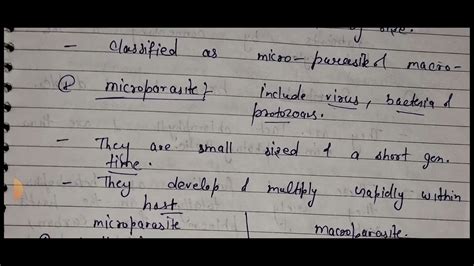 size.
- Classified as micro-parasite & macro-
microparasite} include virus, bacteria &
protozoans.
- They are small sized & a short gen.
time.
- They develop & multiply rapidly within
host
microparasite | macroparasite.